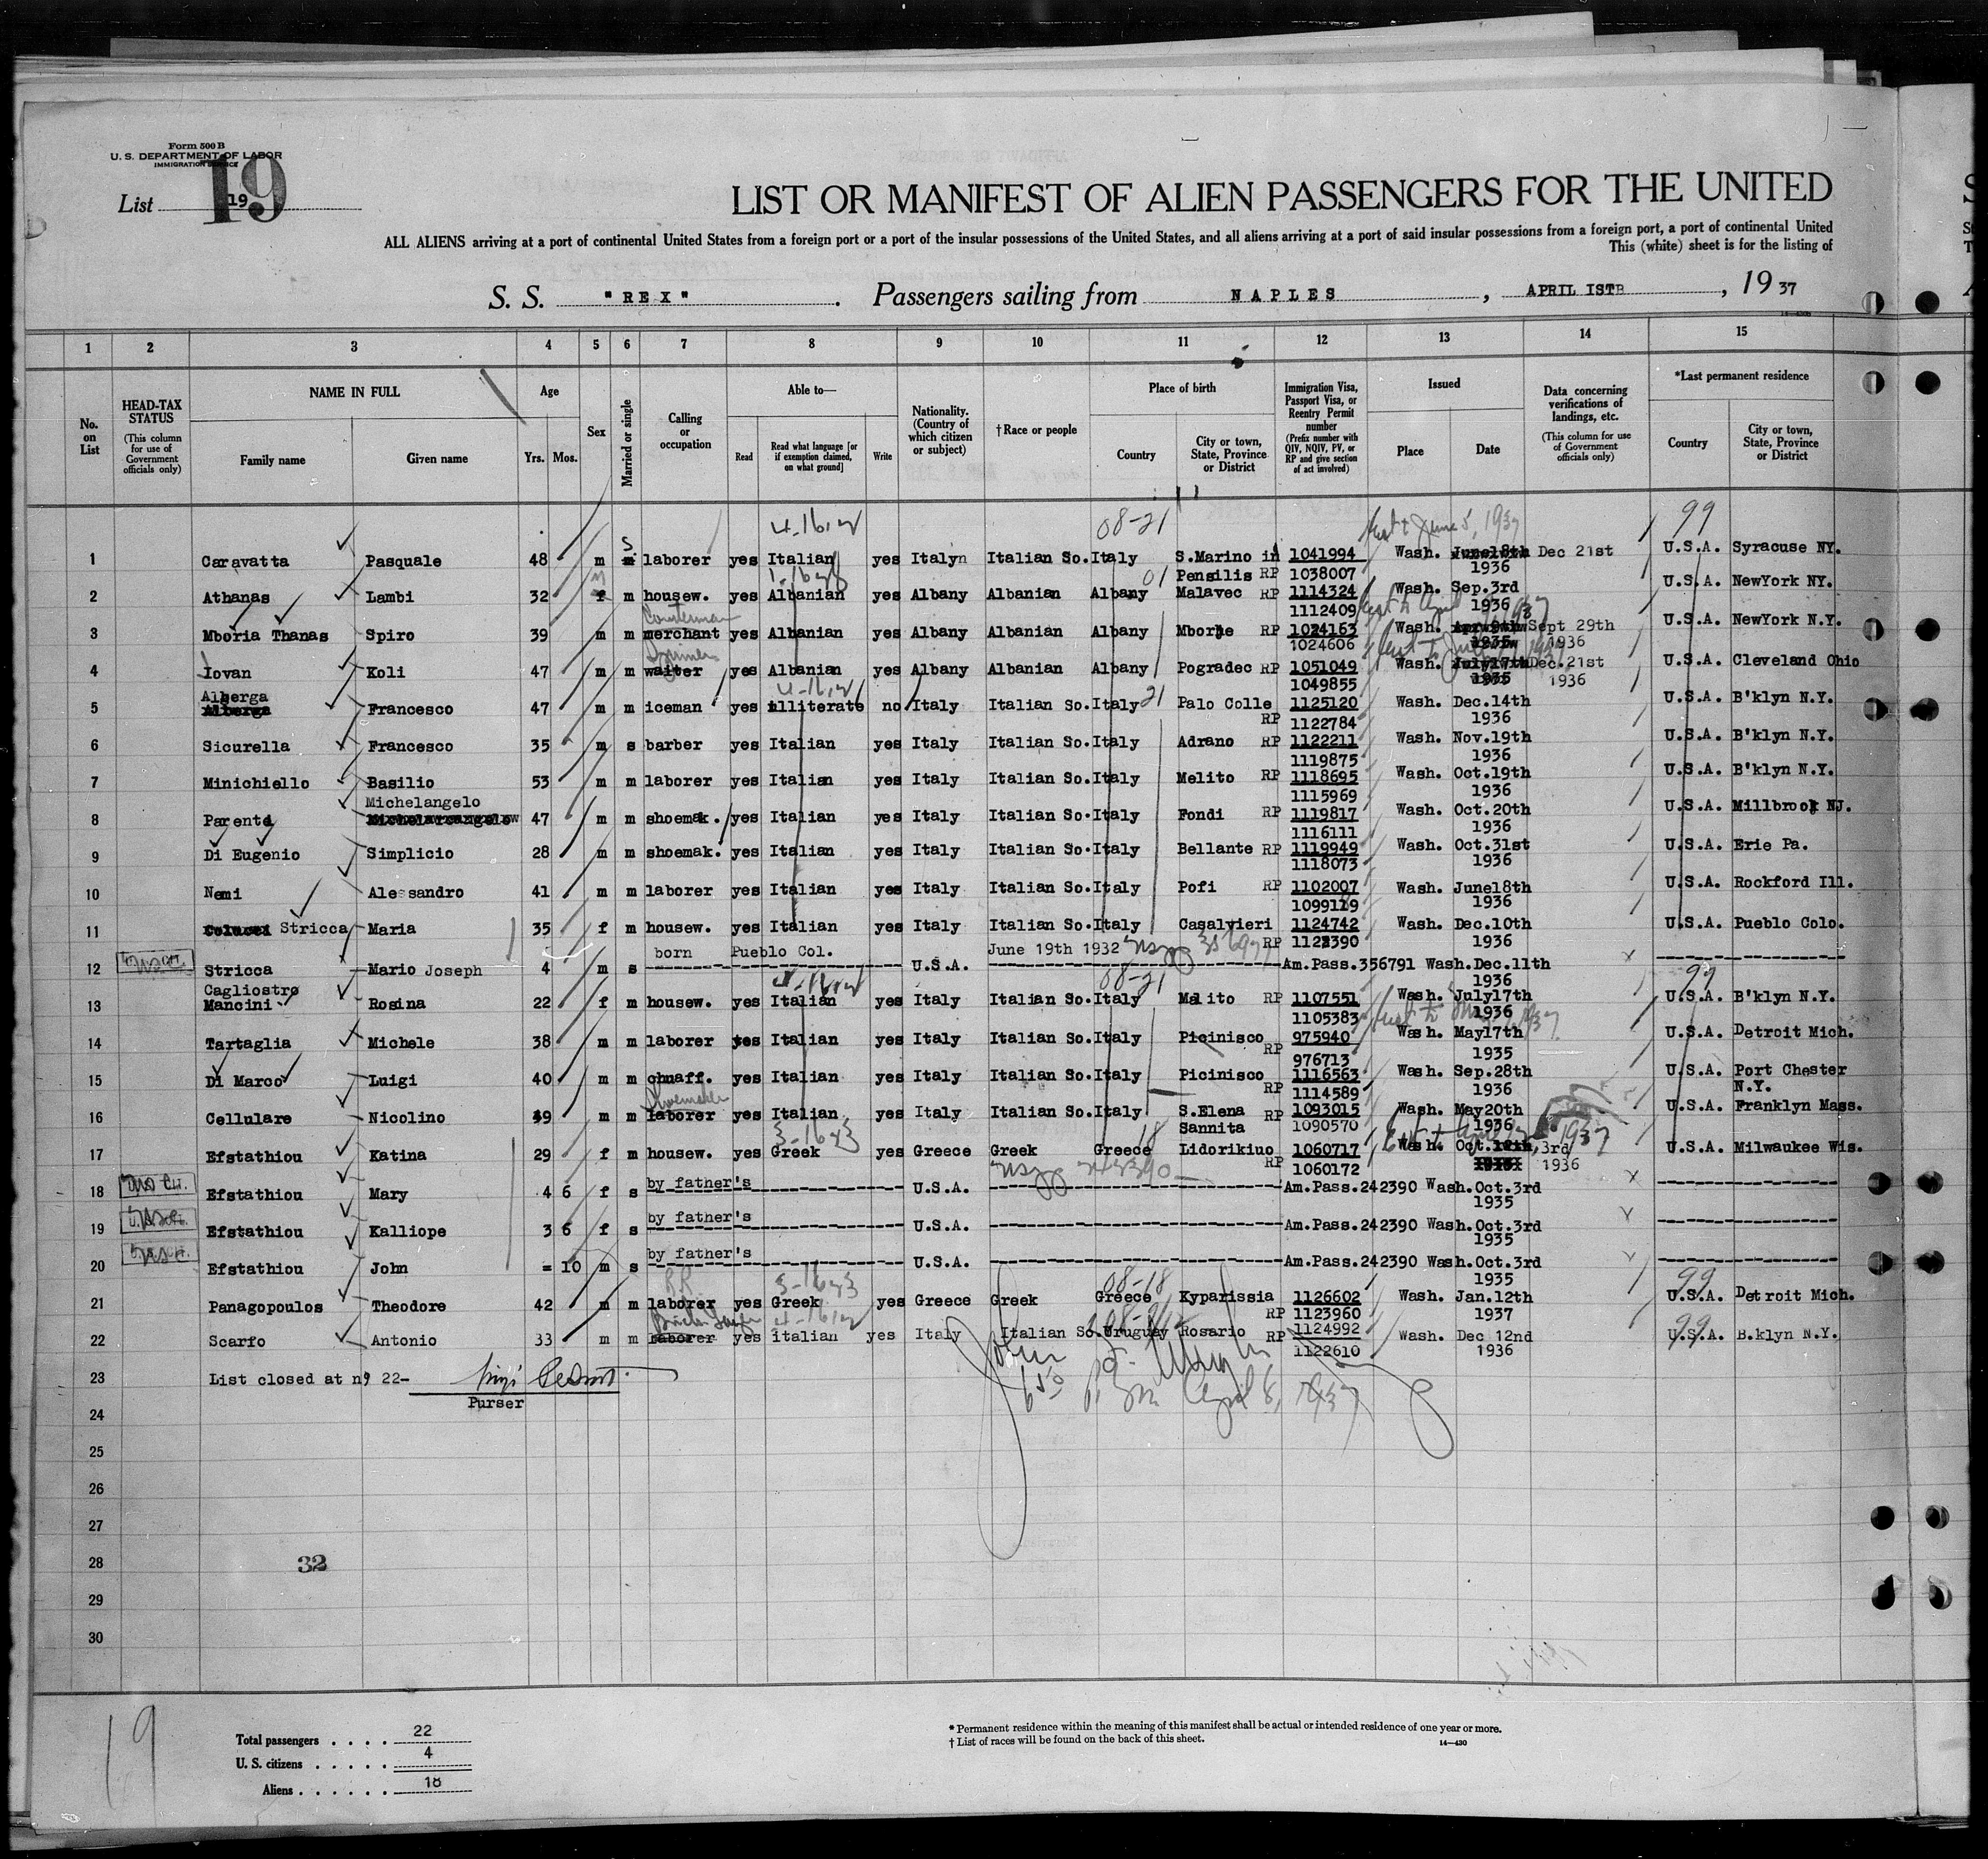 Form 500 B
U. S. DEPARTMENT OF LABOR
IMMIGRATION SERVICE
List 19
19
LIST OR MANIFEST OF ALIEN PASSENGERS FOR THE UNITED
ALL ALIENS arriving at a port of continental United States from a foreign port or a port of the insular possessions of the United States, and all aliens arriving at a port of said insular possessions from a foreign port, a port of continental United
This (white) sheet is for the listing of
S. S. "REX" . Passengers sailing from NAPLES , APRIL ISTB , 19 37
1 2 3 4 5 6 7 8 9 10 11 12 13 14 15
No. on List
HEAD-TAX STATUS
(This column for use of Government officials only)
NAME IN FULL
Family name Given name
Age
Yrs. Mos.
Sex
Married or single
Calling or occupation
Able to—
Read
Read what language [or if exemption claimed, on what ground]
Write
Nationality. (Country of which citizen or subject)
†Race or people
Place of birth
Country
City or town, State, Province or District
Immigration Visa, Passport Visa, or Reentry Permit number
(Prefix number with QIV, NQIV, PV, or RP and give section of act involved)
Issued
Place Date
Data concerning verifications of landings, etc.
(This column for use of Government officials only)
*Last permanent residence
Country
City or town, State, Province or District
08-21 June 5, 1937 99
1 Caravatta Pasquale 48 m m s laborer yes Italian yes Italyn Italian So. Italy S.Marino in 1041994 Wash. June18th Dec 21st U.S.A. Syracuse NY.
Pensilis RP 1038007 1936
2 Athanas Lambi 32 f m housew. yes Albanian yes Albany Albanian Albany Malavec RP 1114324 Wash. Sep.3rd U.S.A. NewYork NY.
1112409 1936
Counterman
3 Mboria Thanas Spiro 39 m m merchant yes Albanian yes Albany Albanian Albany Mborje RP 1024163 Wash. Apr.9th Sept 29th U.S.A. NewYork N.Y.
1024606 1935 1936
4 Iovan Koli 47 m m waiter yes Albanian yes Albany Albanian Albany Pogradec RP 1051049 Wash. July17th Dec.21st U.S.A. Cleveland Ohio
1049855 1935 1936
Alberga
5 Alberga Francesco 47 m m iceman yes illiterate no Italy Italian So. Italy 21 Palo Colle 1125120 Wash. Dec.14th U.S.A. B'klyn N.Y.
RP 1122784 1936
6 Sicurella Francesco 35 m s barber yes Italian yes Italy Italian So. Italy Adrano RP 1122211 Wash. Nov.19th U.S.A. B'klyn N.Y.
1119875 1936
7 Minichiello Basilio 53 m m laborer yes Italian yes Italy Italian So. Italy Melito RP 1118695 Wash. Oct.19th U.S.A. B'klyn N.Y.
Michelangelo 1115969 1936
8 Parente 47 m m shoemak. yes Italian yes Italy Italian So. Italy Fondi RP 1119817 Wash. Oct.20th U.S.A. Millbrook NJ.
1116111 1936
9 Di Eugenio Simplicio 28 m m shoemak. yes Italian yes Italy Italian So. Italy Bellante RP 1119949 Wash. Oct.31st U.S.A. Erie Pa.
1118073 1936
10 Nemi Alessandro 41 m m laborer yes Italian yes Italy Italian So. Italy Pofi RP 1102007 Wash. June18th U.S.A. Rockford Ill.
1099119 1936
11 Colucci Stricca Maria 35 f m housew. yes Italian yes Italy Italian So. Italy Casalvieri 1124742 Wash. Dec.10th U.S.A. Pueblo Colo.
born Pueblo Col. June 19th 1932 RP 1122390 1936
12 Stricca Mario Joseph 4 m s U.S.A. Am.Pass.356791 Wash.Dec.11th
Cagliostro 08-21 1936 99
13 Mancini Rosina 22 f m housew. yes Italian yes Italy Italian So. Italy Melito RP 1107551 Wash. July17th U.S.A. B'klyn N.Y.
1105383 1936
14 Tartaglia Michele 38 m m laborer yes Italian yes Italy Italian So. Italy Picinisco 975940 Wash. May17th U.S.A. Detroit Mich.
RP 976713 1935
15 Di Marco Luigi 40 m m chuaff. yes Italian yes Italy Italian So. Italy Picinisco 1116563 Wash. Sep.28th U.S.A. Port Chester
RP 1114589 1936 N.Y.
Shoemaker
16 Cellulare Nicolino 49 m m laborer yes Italian yes Italy Italian So. Italy S.Elena RP 1093015 Wash. May20th U.S.A. Franklyn Mass.
Sannita 1090570 1936
17 Efstathiou Katina 29 f m housew. yes Greek yes Greece Greek Greece 18 Lidorikiuo 1060717 Wash. Oct. 3rd U.S.A. Milwaukee Wis.
RP 1060172 1936
by father's
18 Efstathiou Mary 4 6 f s U.S.A. Am.Pass.242390 Wash.Oct.3rd
1935
by father's
19 Efstathiou Kalliope 3 6 f s U.S.A. Am.Pass.242390 Wash.Oct.3rd
1935
by father's
20 Efstathiou John = 10 m s U.S.A. Am.Pass.242390 Wash.Oct.3rd
08-18 1935 99
21 Panagopoulos Theodore 42 m m laborer yes Greek yes Greece Greek Greece Kyparissia 1126602 Wash. Jan.12th U.S.A. Detroit Mich.
RP 1123960 1937
22 Scarfo Antonio 33 m m laborer yes italian yes Italy Italian So. Uruguay Rosario RP 1124992 Wash. Dec 12nd U.S.A. B.klyn N.Y.
1122610 1936
23 List closed at nº 22-
Purser
April 8, 1937
24
25
26
27
28 32
29
30
19
Total passengers . . . . 22
U. S. citizens . . . . . 4
Aliens . . . . . . 18
* Permanent residence within the meaning of this manifest shall be actual or intended residence of one year or more.
† List of races will be found on the back of this sheet.
14—430